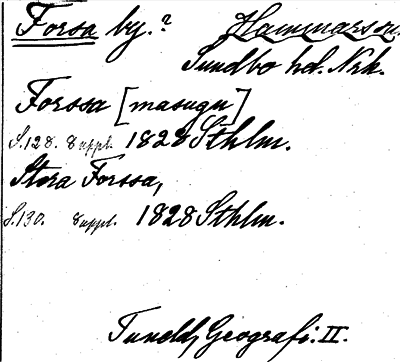 Forsa by.? Hammars sn.
Sundbo hd. Nrk.
Forssa [masugn]
S.128. Suppl. 1828 Sthlm.
Stora Forssa,
S.130. Suppl. 1828 Sthlm.
Tuneld, Geografi. II.